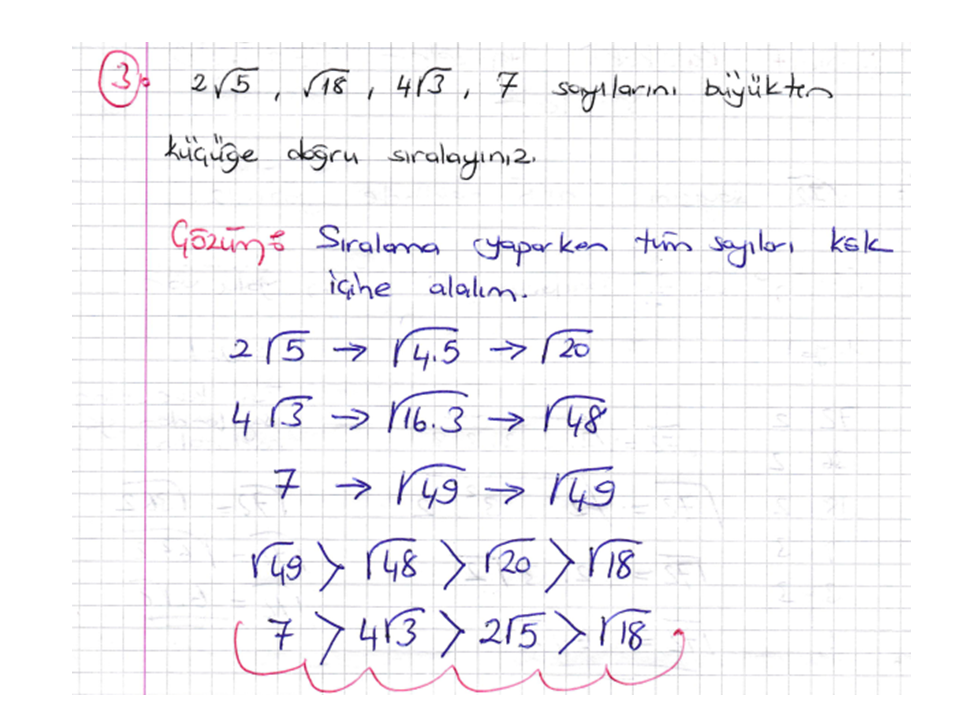 3. 2√5, √18, 4√3, 7 sayılarını büyükten
küçüğe doğru sıralayınız.
Çözüm: Sıralama yaparken tüm sayıları kök
içine alalım.
2√5 → √4.5 → √20
4√3 → √16.3 → √48
7 → √49 → √49
√49 > √48 > √20 > √18
7 > 4√3 > 2√5 > √18